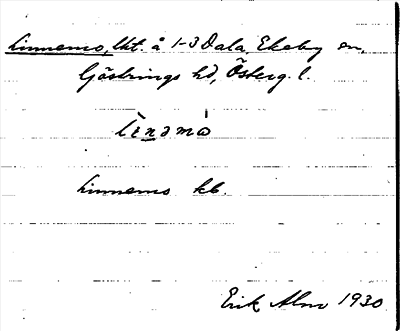 Linnemo, lht. å 1-3 Dala, Ekeby sn,
Göstrings hd, Österg. l.
lìnəmó
Linnemo kb.
Erik Alm 1930